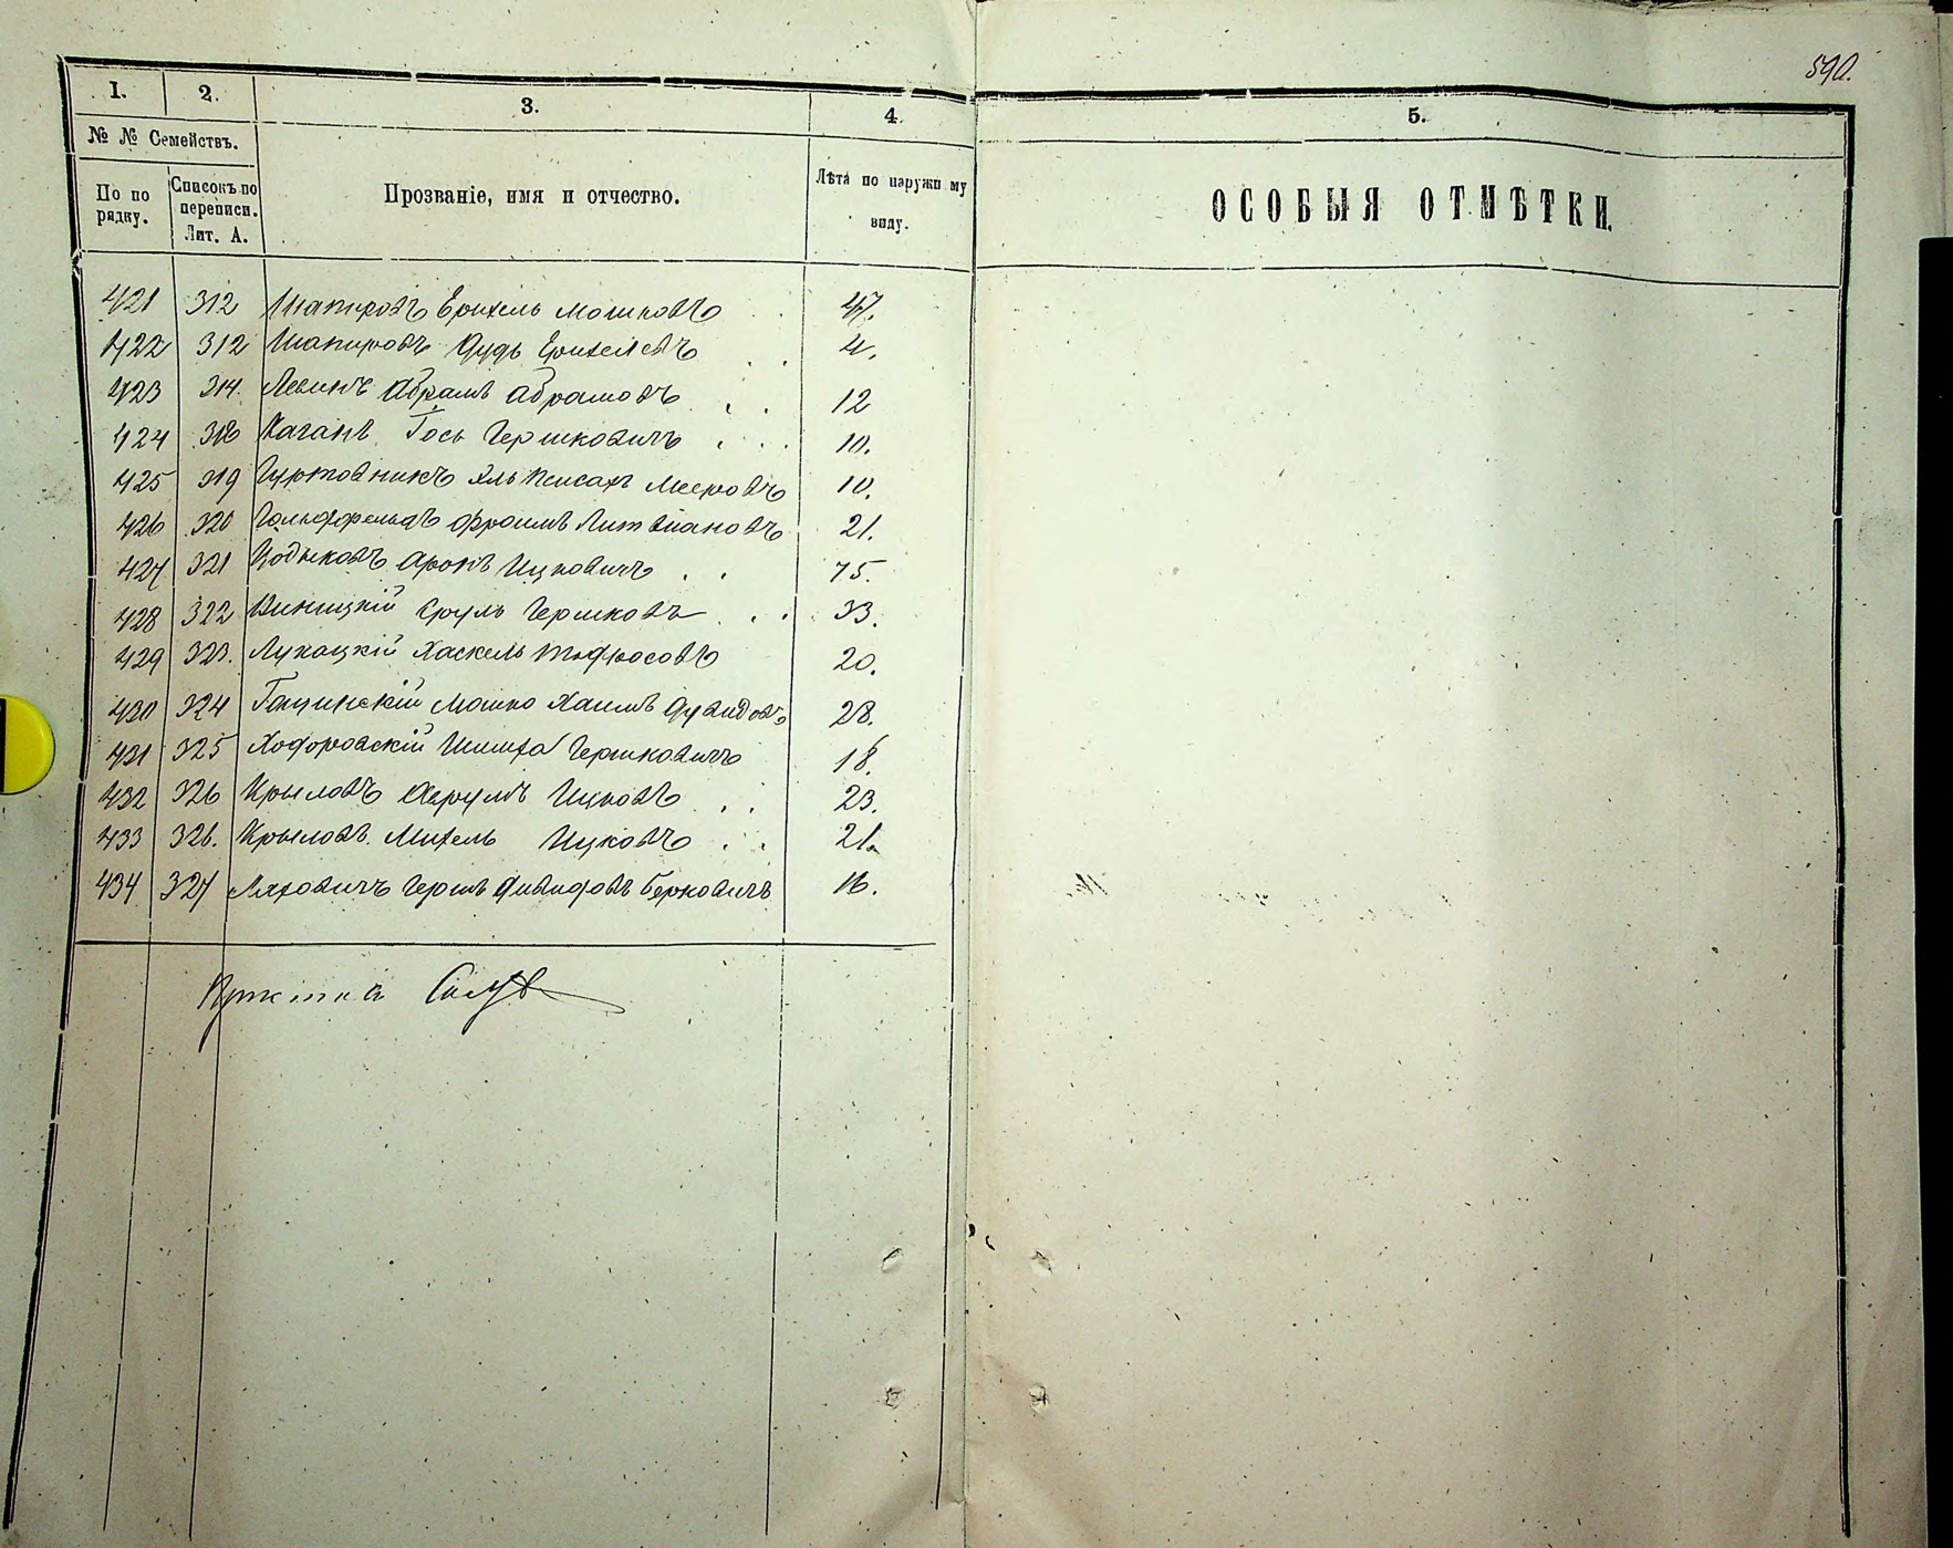 590.
1. 2. 3. 4. 5.
№ № Семействъ.
По по рядку. Списокъ по переписи. Лит. А. Прозваніе, имя и отчество. Лѣта по наружн му виду. ОСОБЫЯ ОТМѢТКИ.
421 312 Шапировъ Ерихель Мошковъ 47.
422 312 Шапировъ Дудь Ерихелевъ 4.
423 314. Левинъ Абрамъ Абрамовъ 12
424 318 Каганъ Гось Гершковичъ 10.
425 319 Гуртовникъ Мееровъ 10.
426 320 Фроимъ 21.
427 321 Аронъ Ицковичъ 75.
428 322 Виницкій Сруль Гершковъ 33.
429 323. Лукацкій Хаскель 20.
430 324 Мошко Хаимъ 28.
431 325 Ходоровскій Шимха Гершковичъ 18.
432 326 Крыловъ Аврумъ Ицковъ 23.
433 326. Крыловъ Михель Ицковъ 21.
434 327 Ляховичъ Гершъ Берковичъ 16.